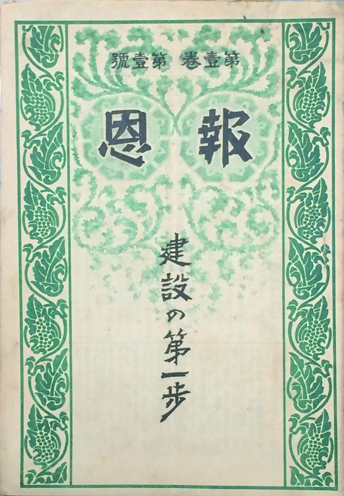 第壹卷 第壹號
報恩
建設の第一歩